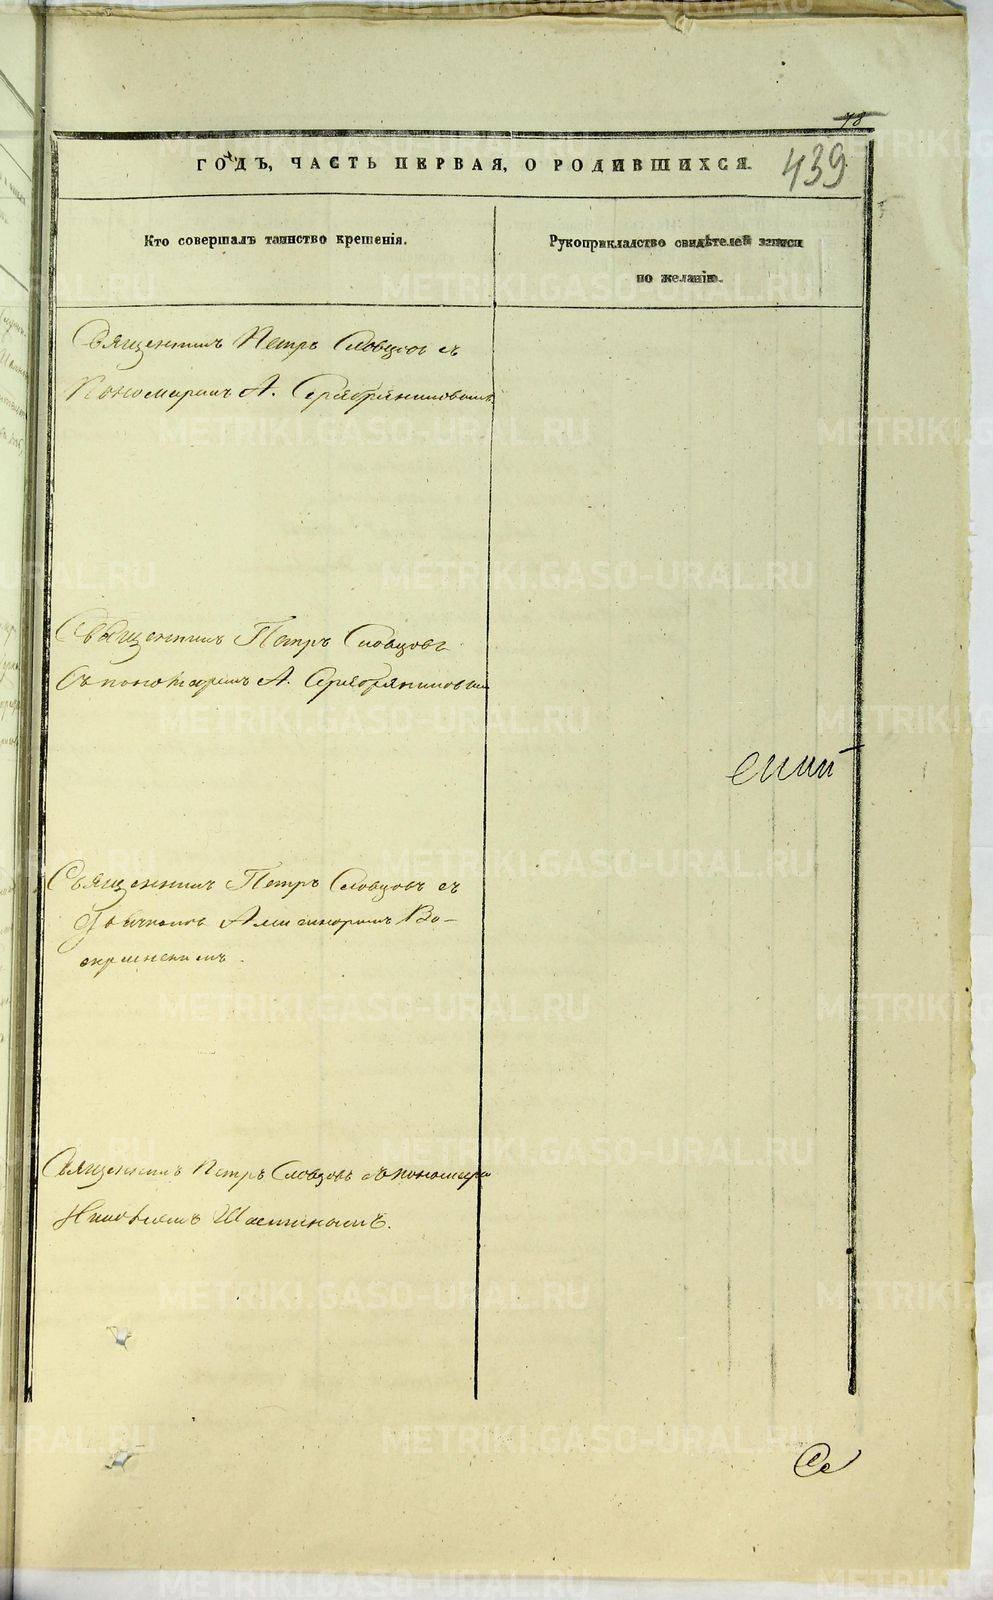 78
439
ГОДЪ, ЧАСТЬ ПЕРВАЯ, О РОДИВШИХСЯ.
Кто совершалъ таинство крещенія.
Рукоприкладство свидѣтелей записи
по желанію.
Священникъ Петръ Словцовъ съ
Пономаремъ А. Серебрениковымъ
Священникъ Петръ Словцовъ
съ пономаремъ А. Серебрениковым
Священникъ Петръ Словцовъ съ
Дьячкомъ Александромъ Во-
скресенскимъ.
Священникъ Петръ Словцовъ съ пономаре
Шастинымъ.
METRIKI.GASO-URAL.RU